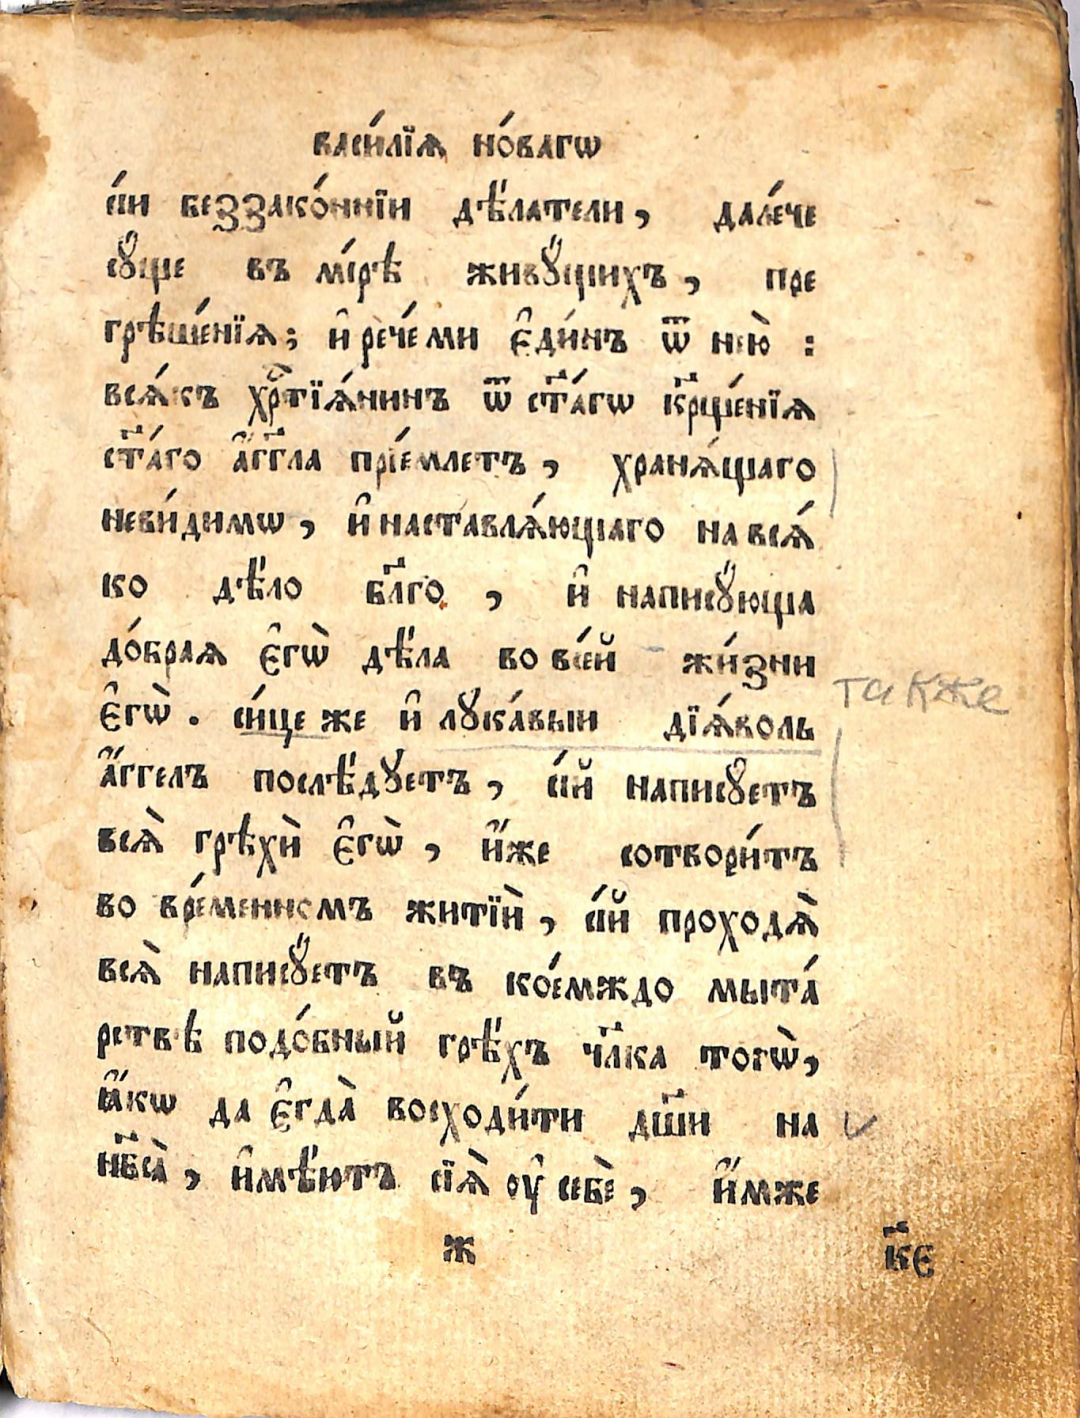 васи́лїѧ но́вагѡ
сі́и беззако́ннїи дѣ́латели, дале́че
сꙋ́ще въ мі́рѣ живꙋ́щихъ, пре
грѣше́нїѧ; и҆ рече́ ми є҆ди́нъ ѿ нею̀ :
всѧ́къ хрⷭ҇тїѧ́нинъ ѿ ст҃а́гѡ кр҃ще́нїѧ
ст҃а́го а҆́гг҃ла прїе́млетъ, хранѧ́щаго
неви́димѡ, и҆ наставлѧ́ющаго на всѧ́
ко дѣ́ло бл҃го, и҆ написꙋ́юща
до́браѧ є҆гѡ̀ дѣ́ла во все́й жи́зни
є҆гѡ̀. си́це же и҆ лꙋка́выи дїѧ́волъ
также
а҆́ггелъ послѣ́дꙋетъ, сі́й написꙋ́етъ
всѧ̀ грѣхѝ є҆гѡ̀, и҆́же сотвори́тъ
во вре́менномъ житїѝ, сі́й проходѧ̀
всѧ̀ написꙋ́етъ въ кое́мждо мыта́
рствѣ подо́бный грѣ́хъ чл҃ка тогѡ̀,
ꙗ҆́кѡ да є҆гда̀ восходи́ти дш҃и на
нб҃са̀, и҆мѣ́ютъ сїѧ̀ оу҆ себѐ, и҆́мже
ж
к҃є